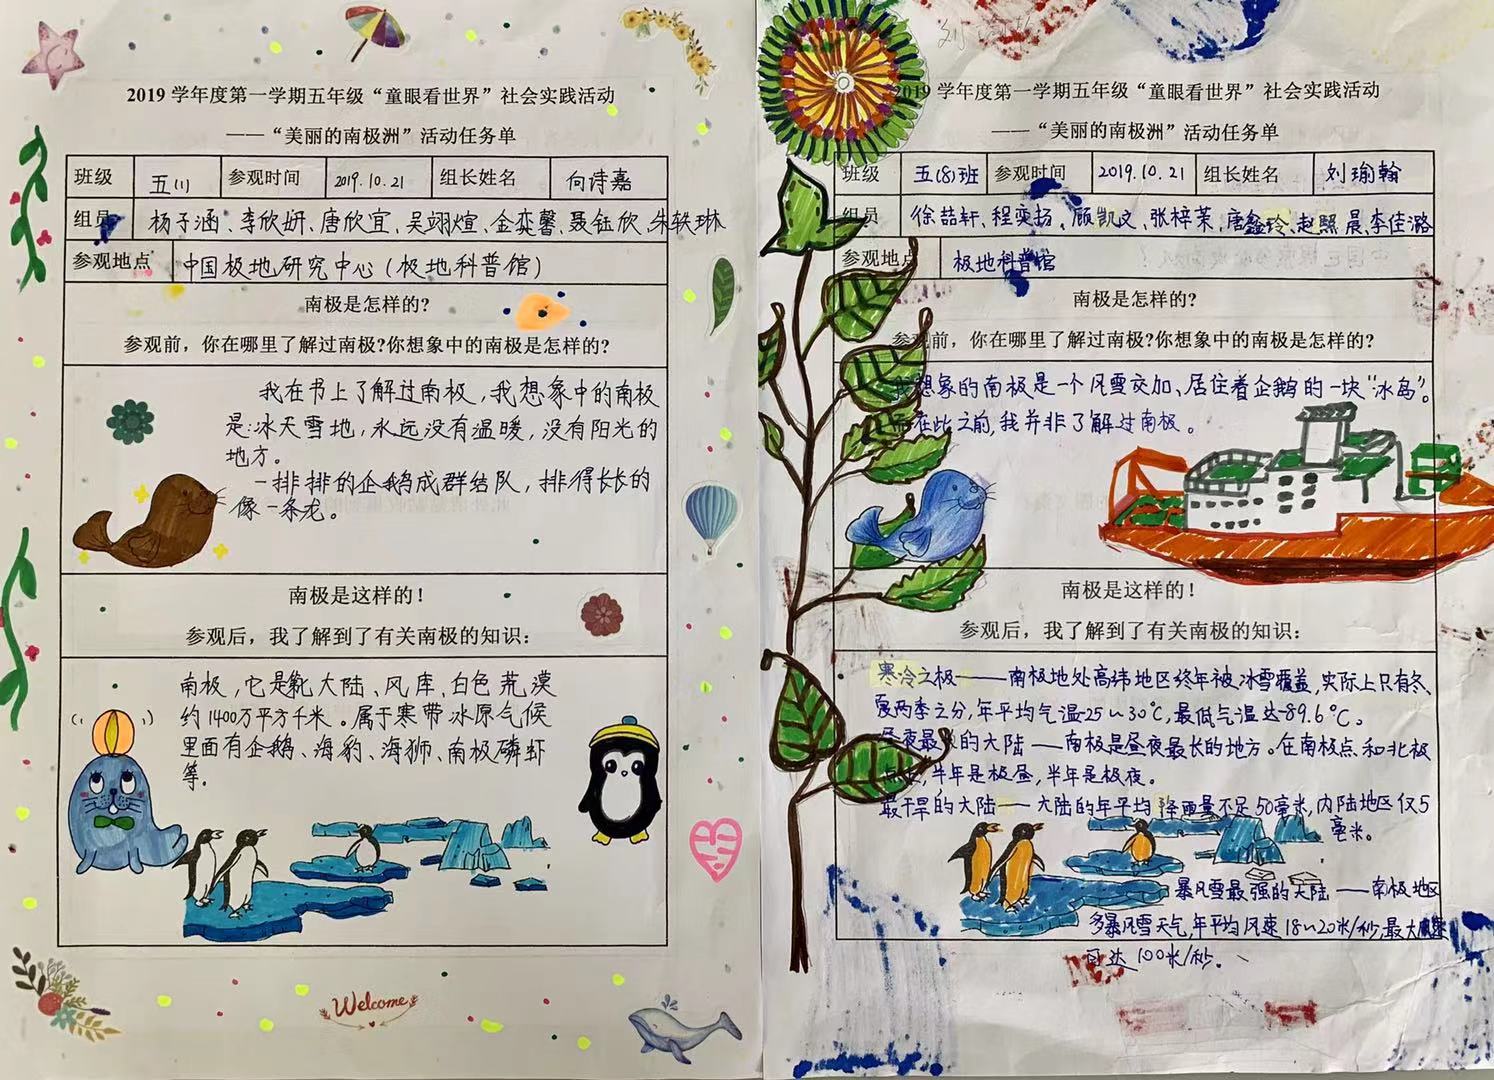 2019 学年度第一学期五年级“童眼看世界”社会实践活动
——“美丽的南极洲”活动任务单
班级 五(1) 参观时间 2019.10.21 组长姓名 向诗嘉
组员 杨子涵、李欣妍、唐欣宜、吴翊煊、金奕馨、聂钰欣、朱轶琳
参观地点 中国极地研究中心(极地科普馆)
南极是怎样的?
参观前，你在哪里了解过南极?你想象中的南极是怎样的?
我在书上了解过南极，我想象中的南极
是:冰天雪地，永远没有温暖，没有阳光的
地方。
一排排的企鹅成群结队，排得长长的
像一条龙。
南极是这样的！
参观后，我了解到了有关南极的知识：
南极，它是 大陆、风库、白色荒漠
约1400万平方千米。属于寒带冰原气候
里面有企鹅、海豹、海狮、南极磷虾
等。
Welcome
2019 学年度第一学期五年级“童眼看世界”社会实践活动
——“美丽的南极洲”活动任务单
班级 五(8)班 参观时间 2019.10.21 组长姓名 刘瑜翰
组员 徐喆轩、程奕扬、顾凯文、张梓茉、唐鑫玲、赵熙晨、李佳潞
参观地点 极地科普馆
南极是怎样的?
参观前，你在哪里了解过南极?你想象中的南极是怎样的?
想象的南极是一个风雪交加、居住着企鹅的一块“冰岛”。
在此之前,我并非了解过南极。
南极是这样的！
参观后，我了解到了有关南极的知识：
寒冷之极———南极地处高纬地区终年被冰雪覆盖,实际上只有冬、
夏两季之分,年平均气温-25~30℃,最低气温达-89.6℃。
昼夜最 的大陆——南极是昼夜最长的地方。在南极点和北极
点上,半年是极昼,半年是极夜。
最干旱的大陆——大陆的年平均降雨量不足50毫米,内陆地区仅5
毫米。
暴风雪最强的大陆——南极地区
多暴风雪天气,年平均风速18~20米/秒,最大风速
可达100米/秒。